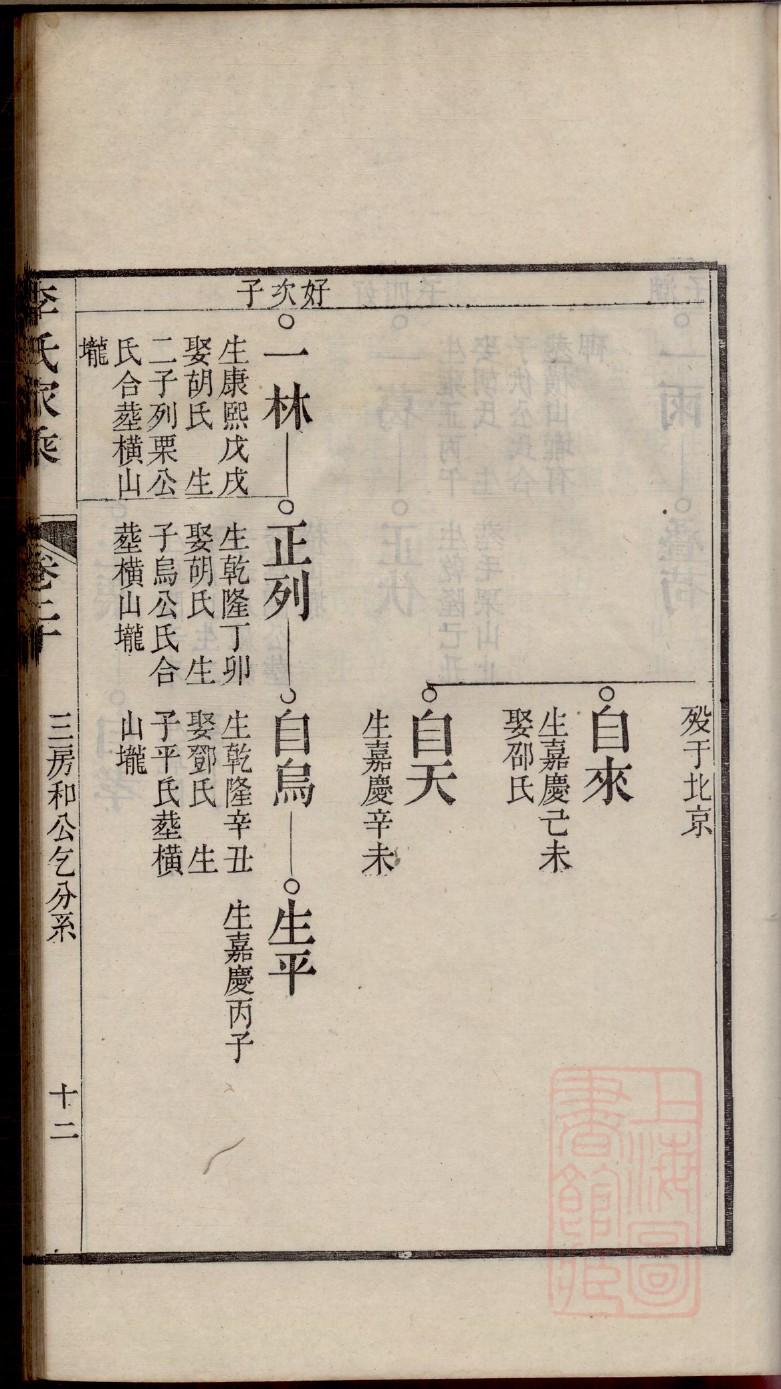 歿于北京
自來
生嘉慶己未
娶邵氏
自天
生嘉慶辛未
好次子
一林
生康熙戊戌
娶胡氏 生
二子列栗公
氏合塟橫山
壠
正列
生乾隆丁卯
娶胡氏 生
子烏公氏合
塟橫山壠
自烏
生乾隆辛丑
娶鄧氏 生
子平氏塟橫
山壠
生平
生嘉慶丙子
李氏家乘
卷二十
三房和公乞分系
十二
上海圖書館藏